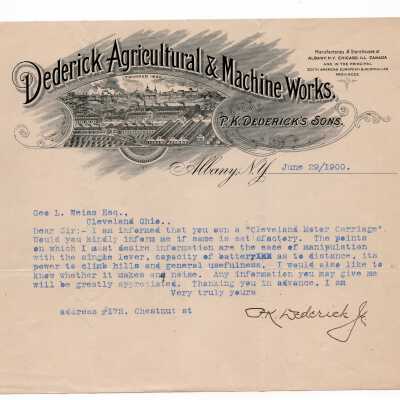 Dederick Agricultural & Machine Works.
P. K. Dederick's Sons.
Manufactories & Storehouses at
ALBANY N.Y. CHICAGO ILL. CANADA
AND IN THE PRINCIPAL
SOUTH AMERICAN EUROPEAN & AUSTRALIAN
PROVINCES.
Albany, N.Y. June 29/1900.
Geo L. Weiss Esq.,
Cleveland Ohio.,
Dear Sir:- I am informed that you own a "Cleveland Motor Carriage".
Would you kindly inform me if same is satisfactory. The points
on which I most desire information are the ease of manipulation
with the single lever, capacity of battery as to distance, its
power to climb hills and general usefulness. I would also like to
know whether it makes any noise. Any information you may give me
will be greatly appreciated. Thanking you in advance. I am
Very truly yours
address #172. Chestnut st
P K Dederick Jr